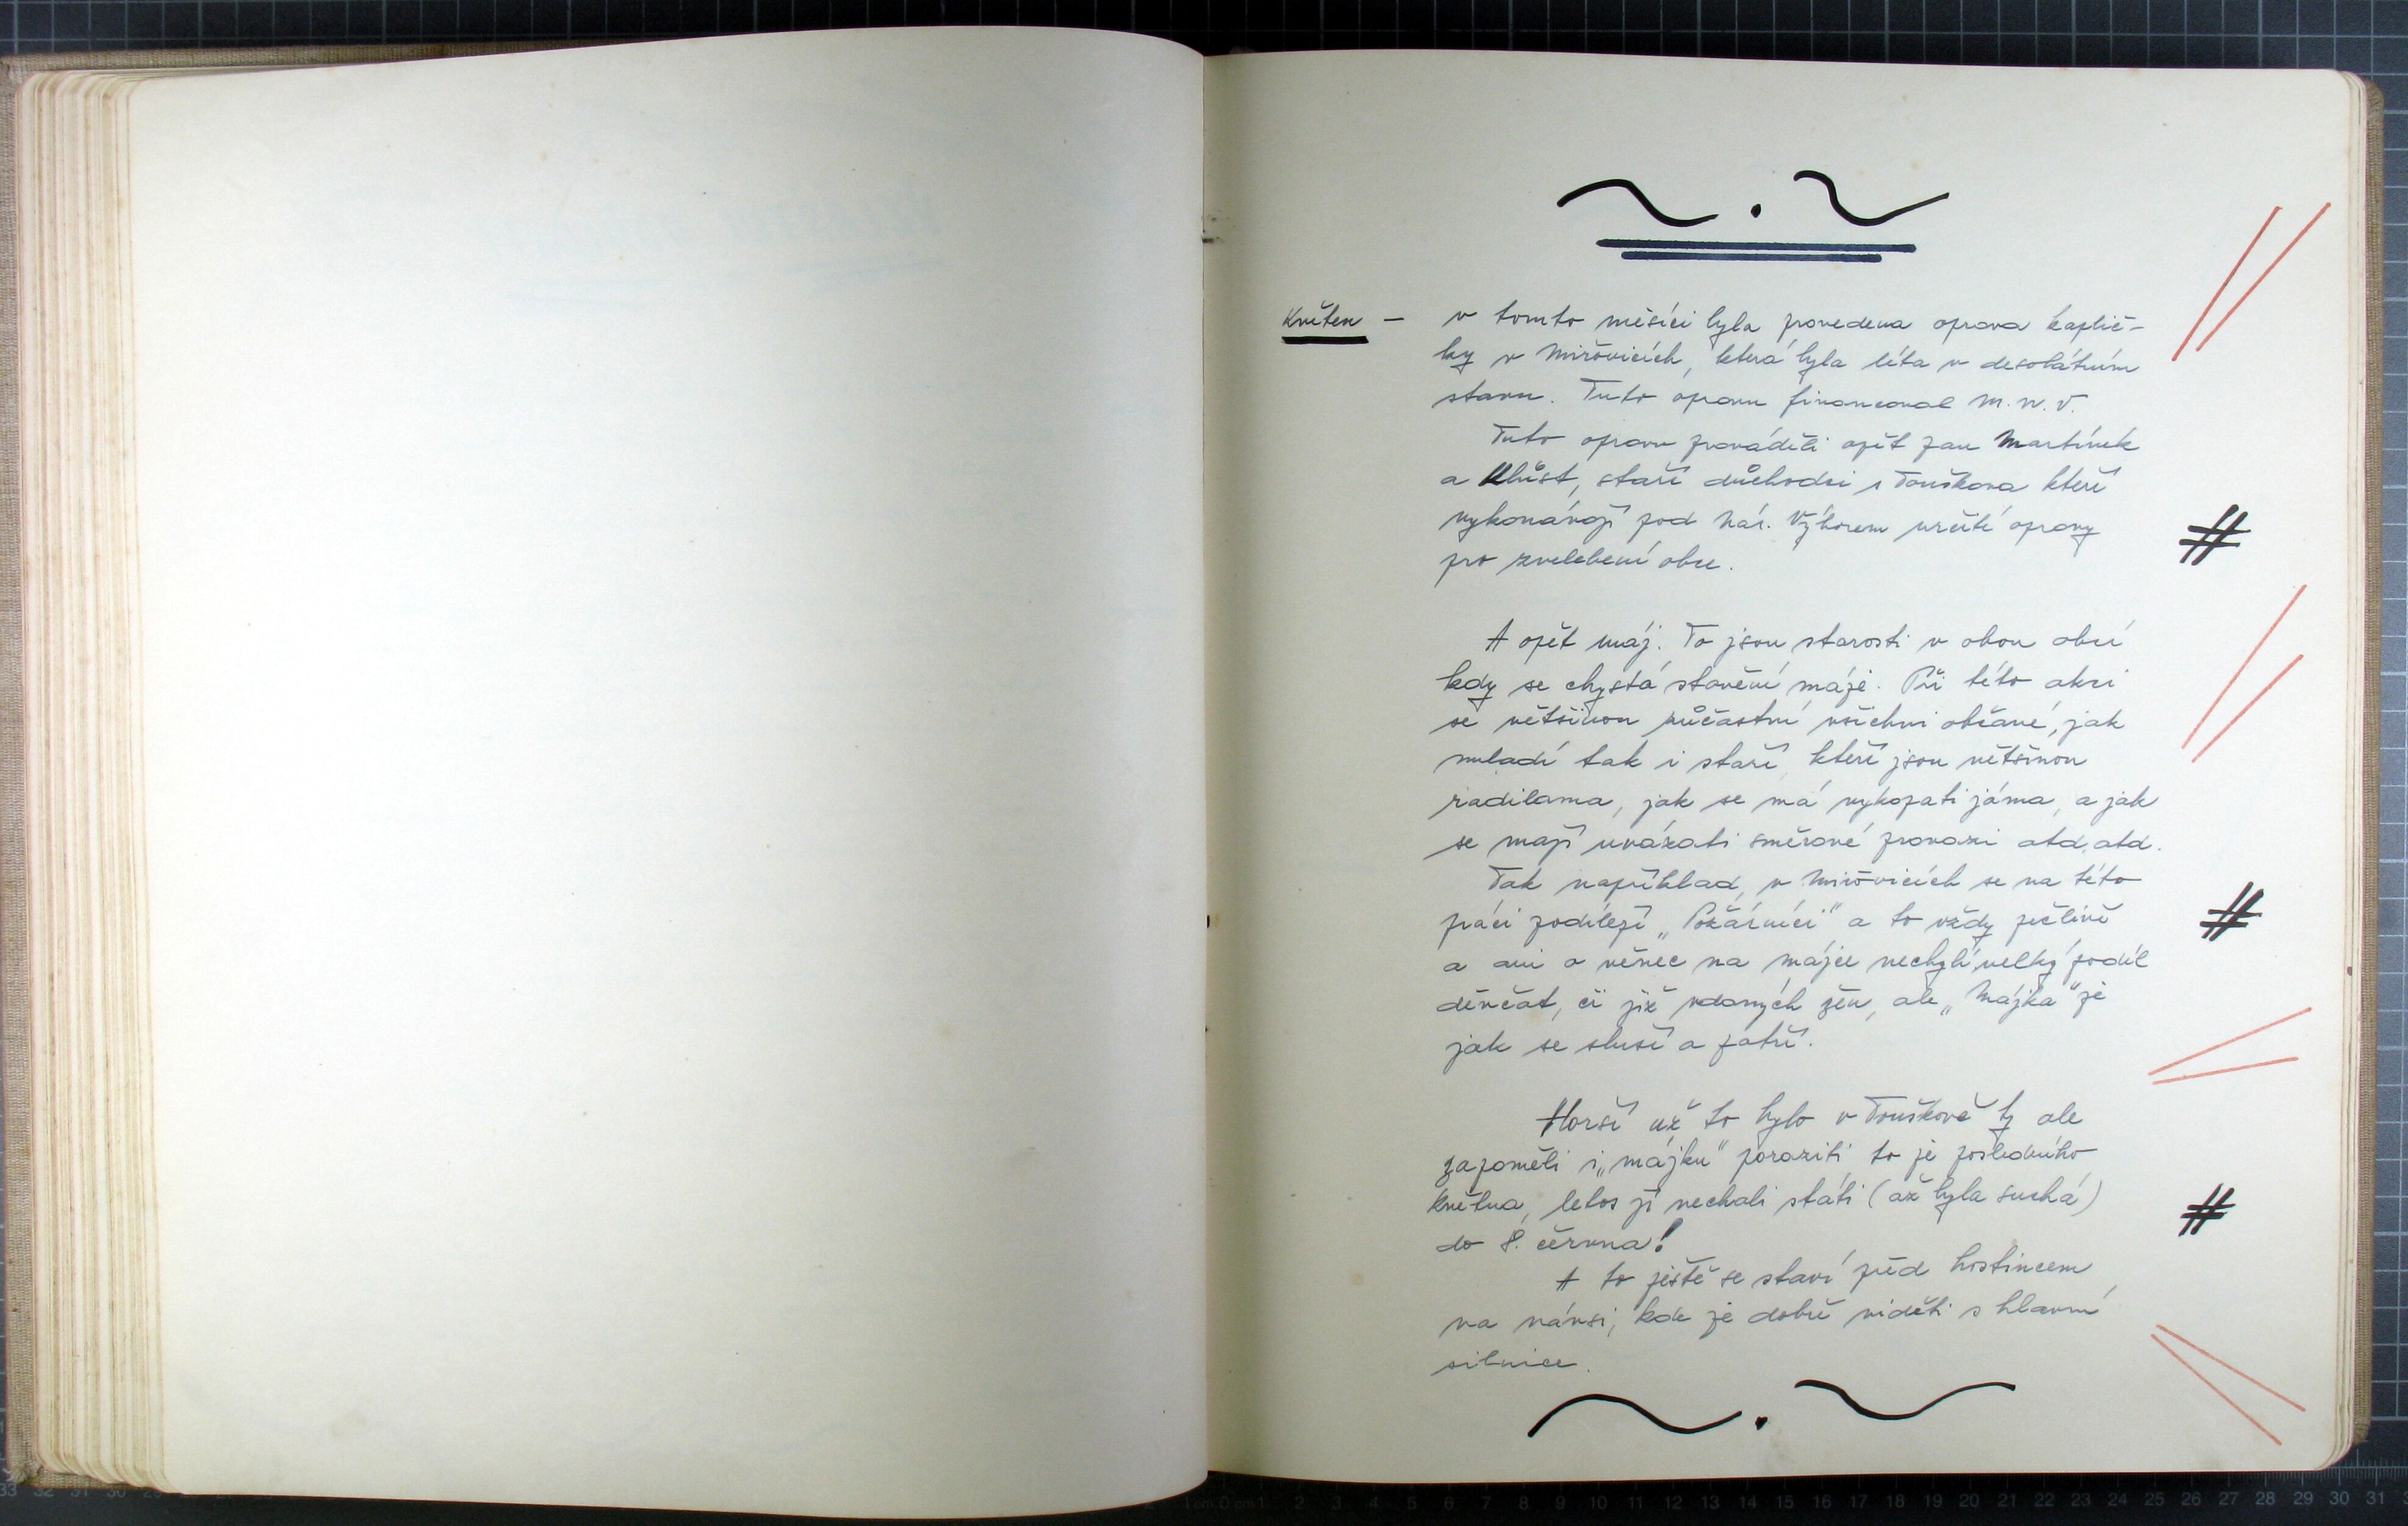 Květen – v tomto měsíci byla provedena oprava kaplič-
ky v Miřovicích, která byla léta v desolátním
stavu. Tuto opravu financoval M.N.V.
Tuto opravu prováděli opět pan Martínek
a , staří důchodci s Touškova kteří
vykonávají pod Nár. Výborem určité opravy
pro zvelebení obce.
A opět máj. To jsou starosti v obou obcí
kdy se chystá stavění máje. Při této akci
se většinou zůčastní všichni občané, jak
mladí tak i staří, kteří jsou většinou
radilama, jak se má vykopati jáma, a jak
se mají uvázati směrové provazi atd. atd.
Tak například, v Miřovicích se na této
práci podílejí „Požárníci“ a to vždy pečlivě
a ani o věnec na májce nechybí velký podíl
děvčat, či již vdaných žen, ale „Májka“ je
jak se sluší a patří.
Horší už to bylo v Touškově ty ale
zapoměli i „májku“ poraziti to je posledního
května, letos jí nechali státi (až byla suchá)
do 8. června!
A to ještě se staví před hostincem
na návsi, kde je dobře viděti s hlavní
silnice.
1 cm 0 cm 1 2 3 4 5 6 7 8 9 10 11 12 13 14 15 16 17 18 19 20 21 22 23 24 25 26 27 28 29 30 31